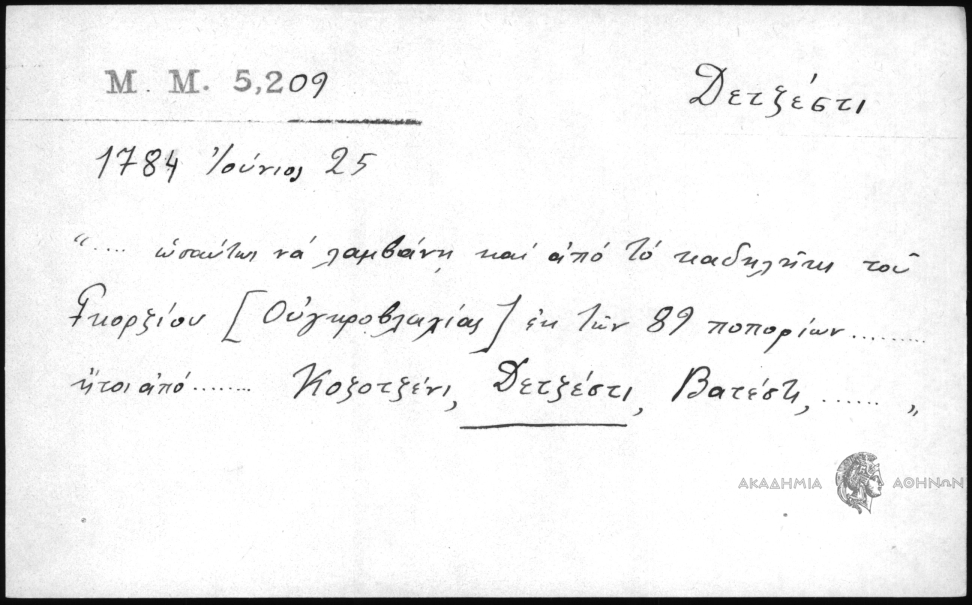 Μ. Μ. 5,209
Δετζέστι
1784 Ἰούνιος 25
“.... ὡσαύτως νά λαμβάνῃ καί ἀπό τό καδηλῆκι τοῦ
Γκορζίου [Οὐγκροβλαχίας] ἐκ τῶν 89 ποπορίων........
ἤτοι ἀπό........ Κοζοτζένι, Δετζέστι, Βατέστι, ...... „
ΑΚΑΔΗΜΙΑ ΑΘΗΝΩΝ